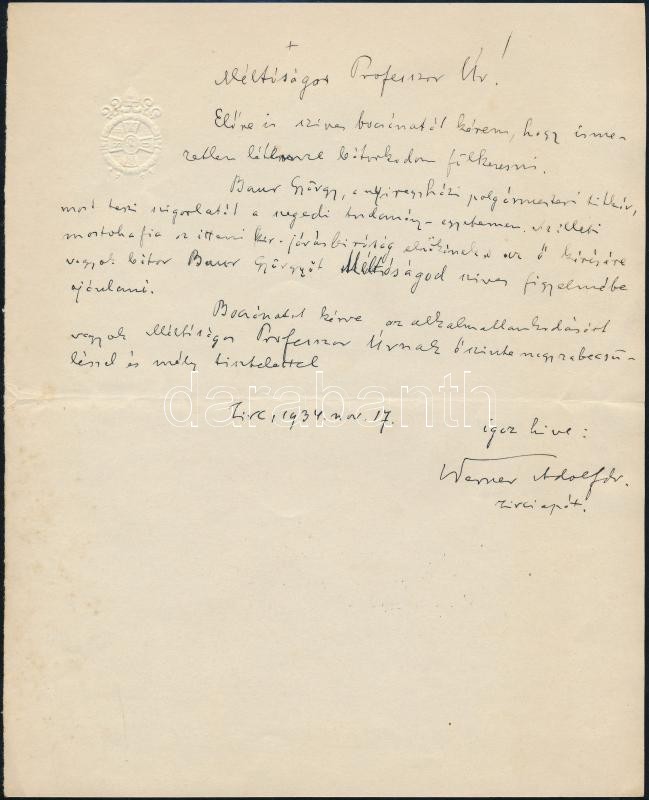 +
Méltóságos Professzor Úr!
Előre is szíves bocsánatát kérem, hogy isme-
retlen létemre bátorkodom fölkeresni.
Baur György, a nyíregyházi polgármesteri titkár,
most teszi szigorlatát a szegedi tudomány-egyetemen. Az illető
mostohafia az ittani kir. járásbíróság elnökének s az ő kérésére
vagyok bátor Baur Györgyöt Méltóságod szíves figyelmébe
ajánlani.
Bocsánatot kérve az alkalmatlankodásért
vagyok Méltóságos Professzor Úrnak őszinte nagyrabecsü-
léssel és mély tisztelettel
Zirc, 1934. nov. 17.
igaz híve:
Werner Adolf dr.
zirci apát.
darabanth